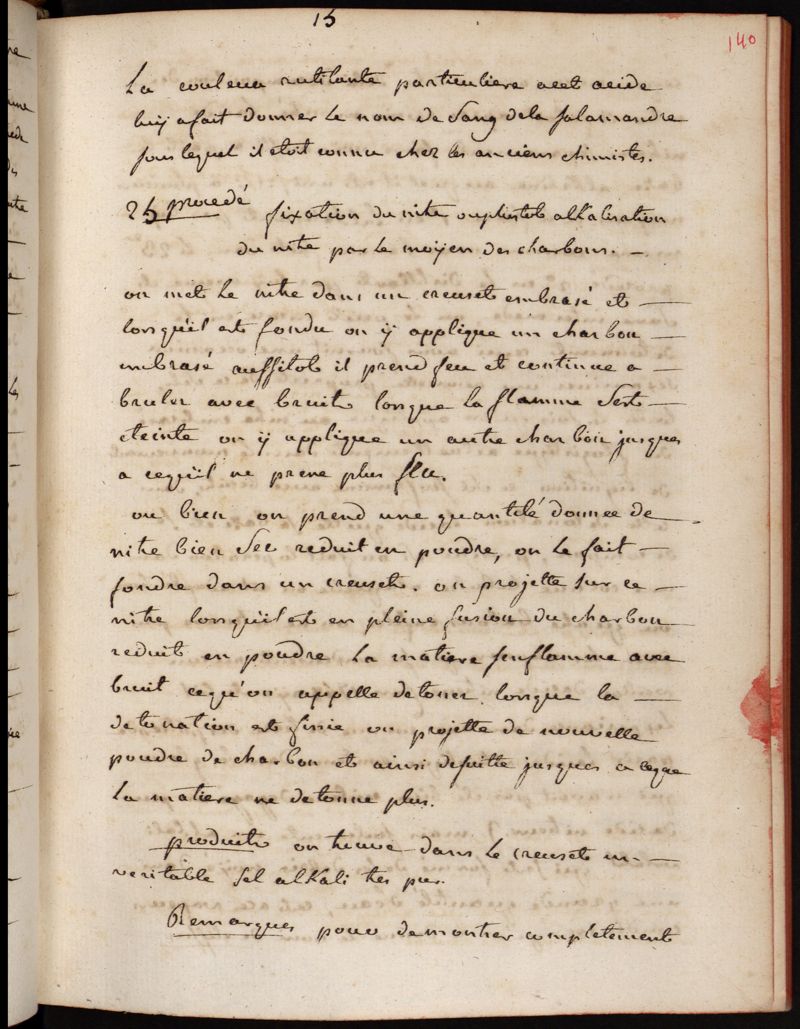 15
140
La couleur rutilante particuliere acet acide
luy a fait donner Le nom de Sang dela Salamandre
sous lequel il etoit connu chez les anciens chimistes.
25 procedé fixation du nitre ou plustot alkalisation
du nitre par Le moyen des charbons. —
on met Le nitre dans un creuset embrasé et —
lorsquil est fondu on ÿ applique un charbon —
embrasé aussitot il prend feu et continue a —
bruler avec bruit lorsque La flamme Sest —
eteinte on ÿ applique un autre charbon jusques
a cequil ne prene plus feu.
ou bien on prend une quantité donnee de —
nitre bien Sec reduit en poudre, on Le fait —
fondre dans un creuset. on projette sur ce —
nitre lorsquil est en pleine fusion du charbon
reduit en poudre La matiere senflamme avec
bruit cequ'on appelle detoner. lorsque la —
detonation est finie on projette de nouvelle
poudre de charbon et ainsi desuitte jusques a ceque
La matiere ne detonne plus.
produit on trouve dans Le creuset un —
veritable Sel alKali tres pur.
Remarques pour demontrer completement